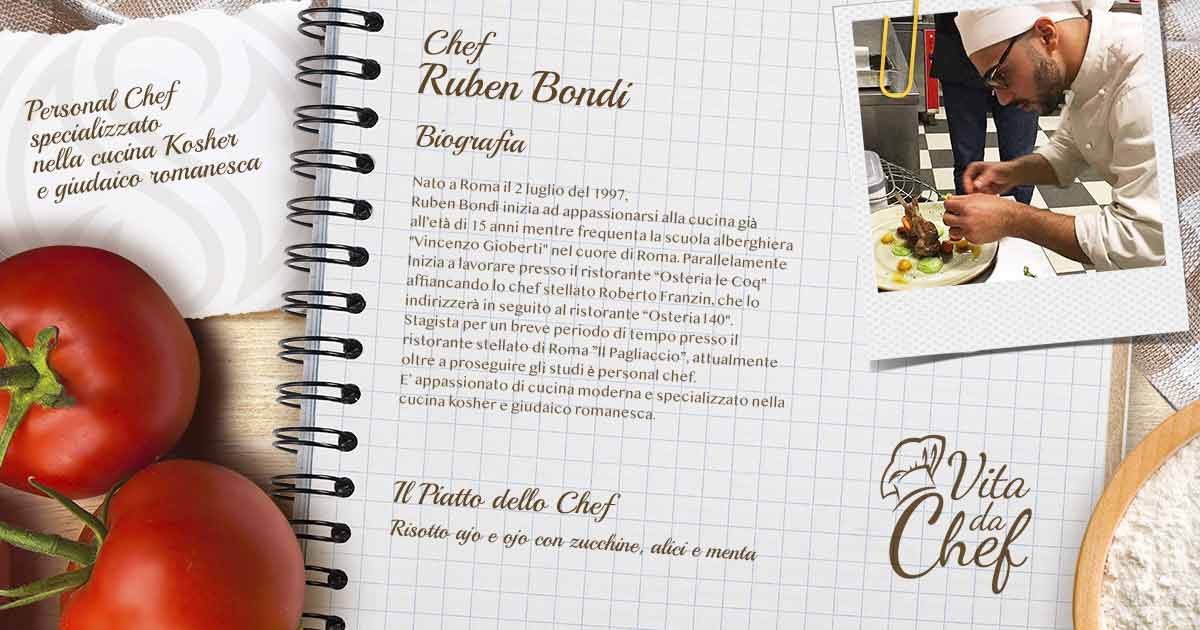 Personal Chef
specializzato
nella cucina Kosher
e giudaico romanesca
Chef
Ruben Bondì
Biografia
Nato a Roma il 2 luglio del 1997,
Ruben Bondì inizia ad appassionarsi alla cucina già
all'età di 15 anni mentre frequenta la scuola alberghiera
"Vincenzo Gioberti" nel cuore di Roma. Parallelamente
Inizia a lavorare presso il ristorante “Osteria le Coq"
affiancando lo chef stellato Roberto Franzin, che lo
indirizzerà in seguito al ristorante “Osteria140".
Stagista per un breve periodo di tempo presso il
ristorante stellato di Roma "Il Pagliaccio", attualmente
oltre a proseguire gli studi è personal chef.
E' appassionato di cucina moderna e specializzato nella
cucina kosher e giudaico romanesca.
Il Piatto dello Chef
Risotto ajo e ojo con zucchine, alici e menta
Vita
da
Chef